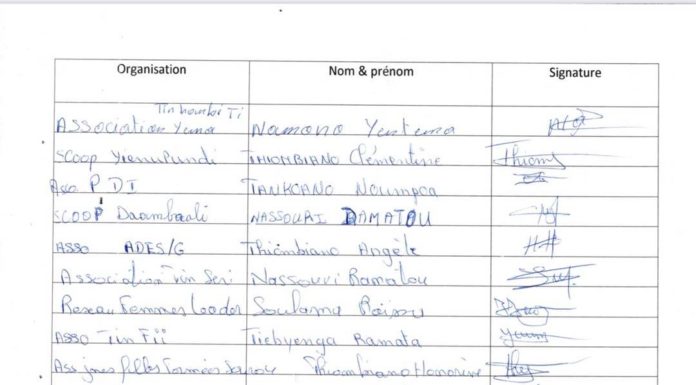 Organisation Nom & prénom Signature
Tin handi Ti
Association Yema Namono Yentema
SCOOP Yienupundi THIOMBIANO Clémentine Thiom
Asso PDI TANKOANO Noumpoa
SCOOP Daambaali NASSOURI DAMATOU
ASSO ADES/G Thiombiano Angèle
Association Tin Seri Nassouri Ramatou
Reseau Femmes Leader Soulama
ASSO Tin Fii Tiebyenga Ramata
Ass jnes filles Formées Thiombiano Honorine